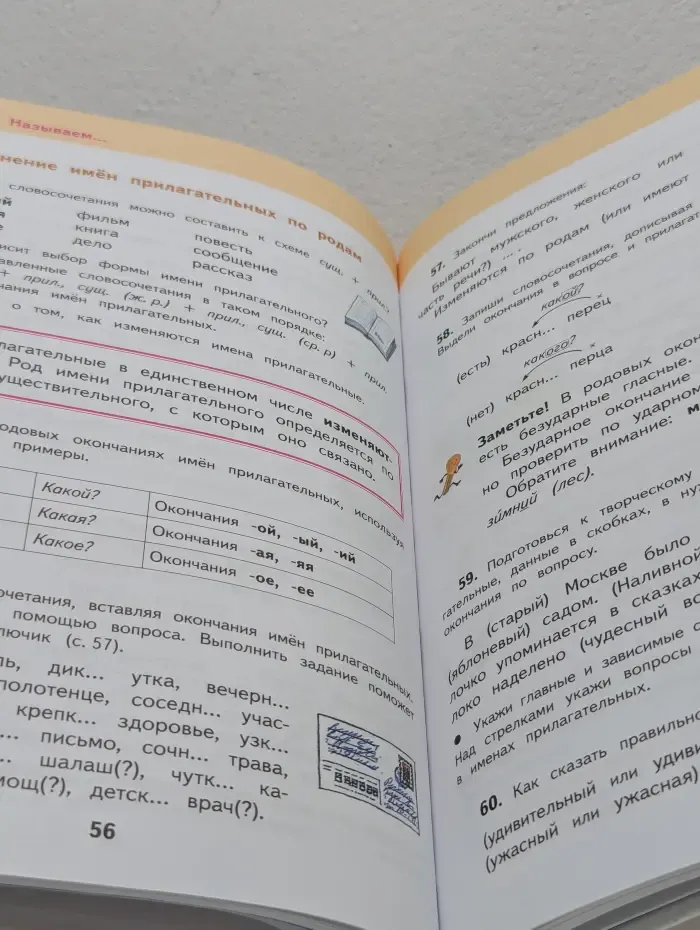 Называем...
нение имён прилагательных по родам
словосочетания можно составить к схеме сущ. + прил.?
ый фильм повесть
я книга сообщение
е дело рассказ
исит выбор формы имени прилагательного?
авленные словосочетания в таком порядке:
+ прил., сущ. (ж. р.) + прил., сущ. (ср. р) + прил.
чания имён прилагательных.
о том, как изменяются имена прилагательные.
лагательные в единственном числе изменяют-
Род имени прилагательного определяется по
уществительного, с которым оно связано.
одовых окончаниях имён прилагательных, используя
примеры.
Какой? Окончания -ой, -ый, -ий
Какая? Окончания -ая, -яя
Какое? Окончания -ое, -ее
очетания, вставляя окончания имён прилагательных.
помощью вопроса. Выполнить задание поможет
лючик (с. 57).
ль, дик... утка, вечерн...
полотенце, соседн... учас-
крепк... здоровье, узк...
... письмо, сочн... трава,
.. шалаш(?), чутк... ка-
мощ(?), детск... врач(?).
56
57. Закончи предложения:
Бывают мужского, женского или
части речи?) ... .
Изменяются по родам (или имеют
58. Запиши словосочетания, дописывая
Выдели окончания в вопросе и прилагат
какой?
(есть) красн... перец
какого?
(нет) красн... перца
Заметьте! В родовых окон
есть безударные гласные.
Безударное окончание
но проверить по ударном
Обратите внимание: м
зи́мний (лес).
59. Подготовься к творческому
гательные, данные в скобках, в ну
окончания по вопросу.
В (старый) Москве было
(яблоневый) садом. (Наливной
лочко упоминается в сказках
локо наделено (чудесный во
• Укажи главные и зависимые с
Над стрелками укажи вопросы
в именах прилагательных.
60. Как сказать правильно
(удивительный или удиви
(ужасный или ужасная)